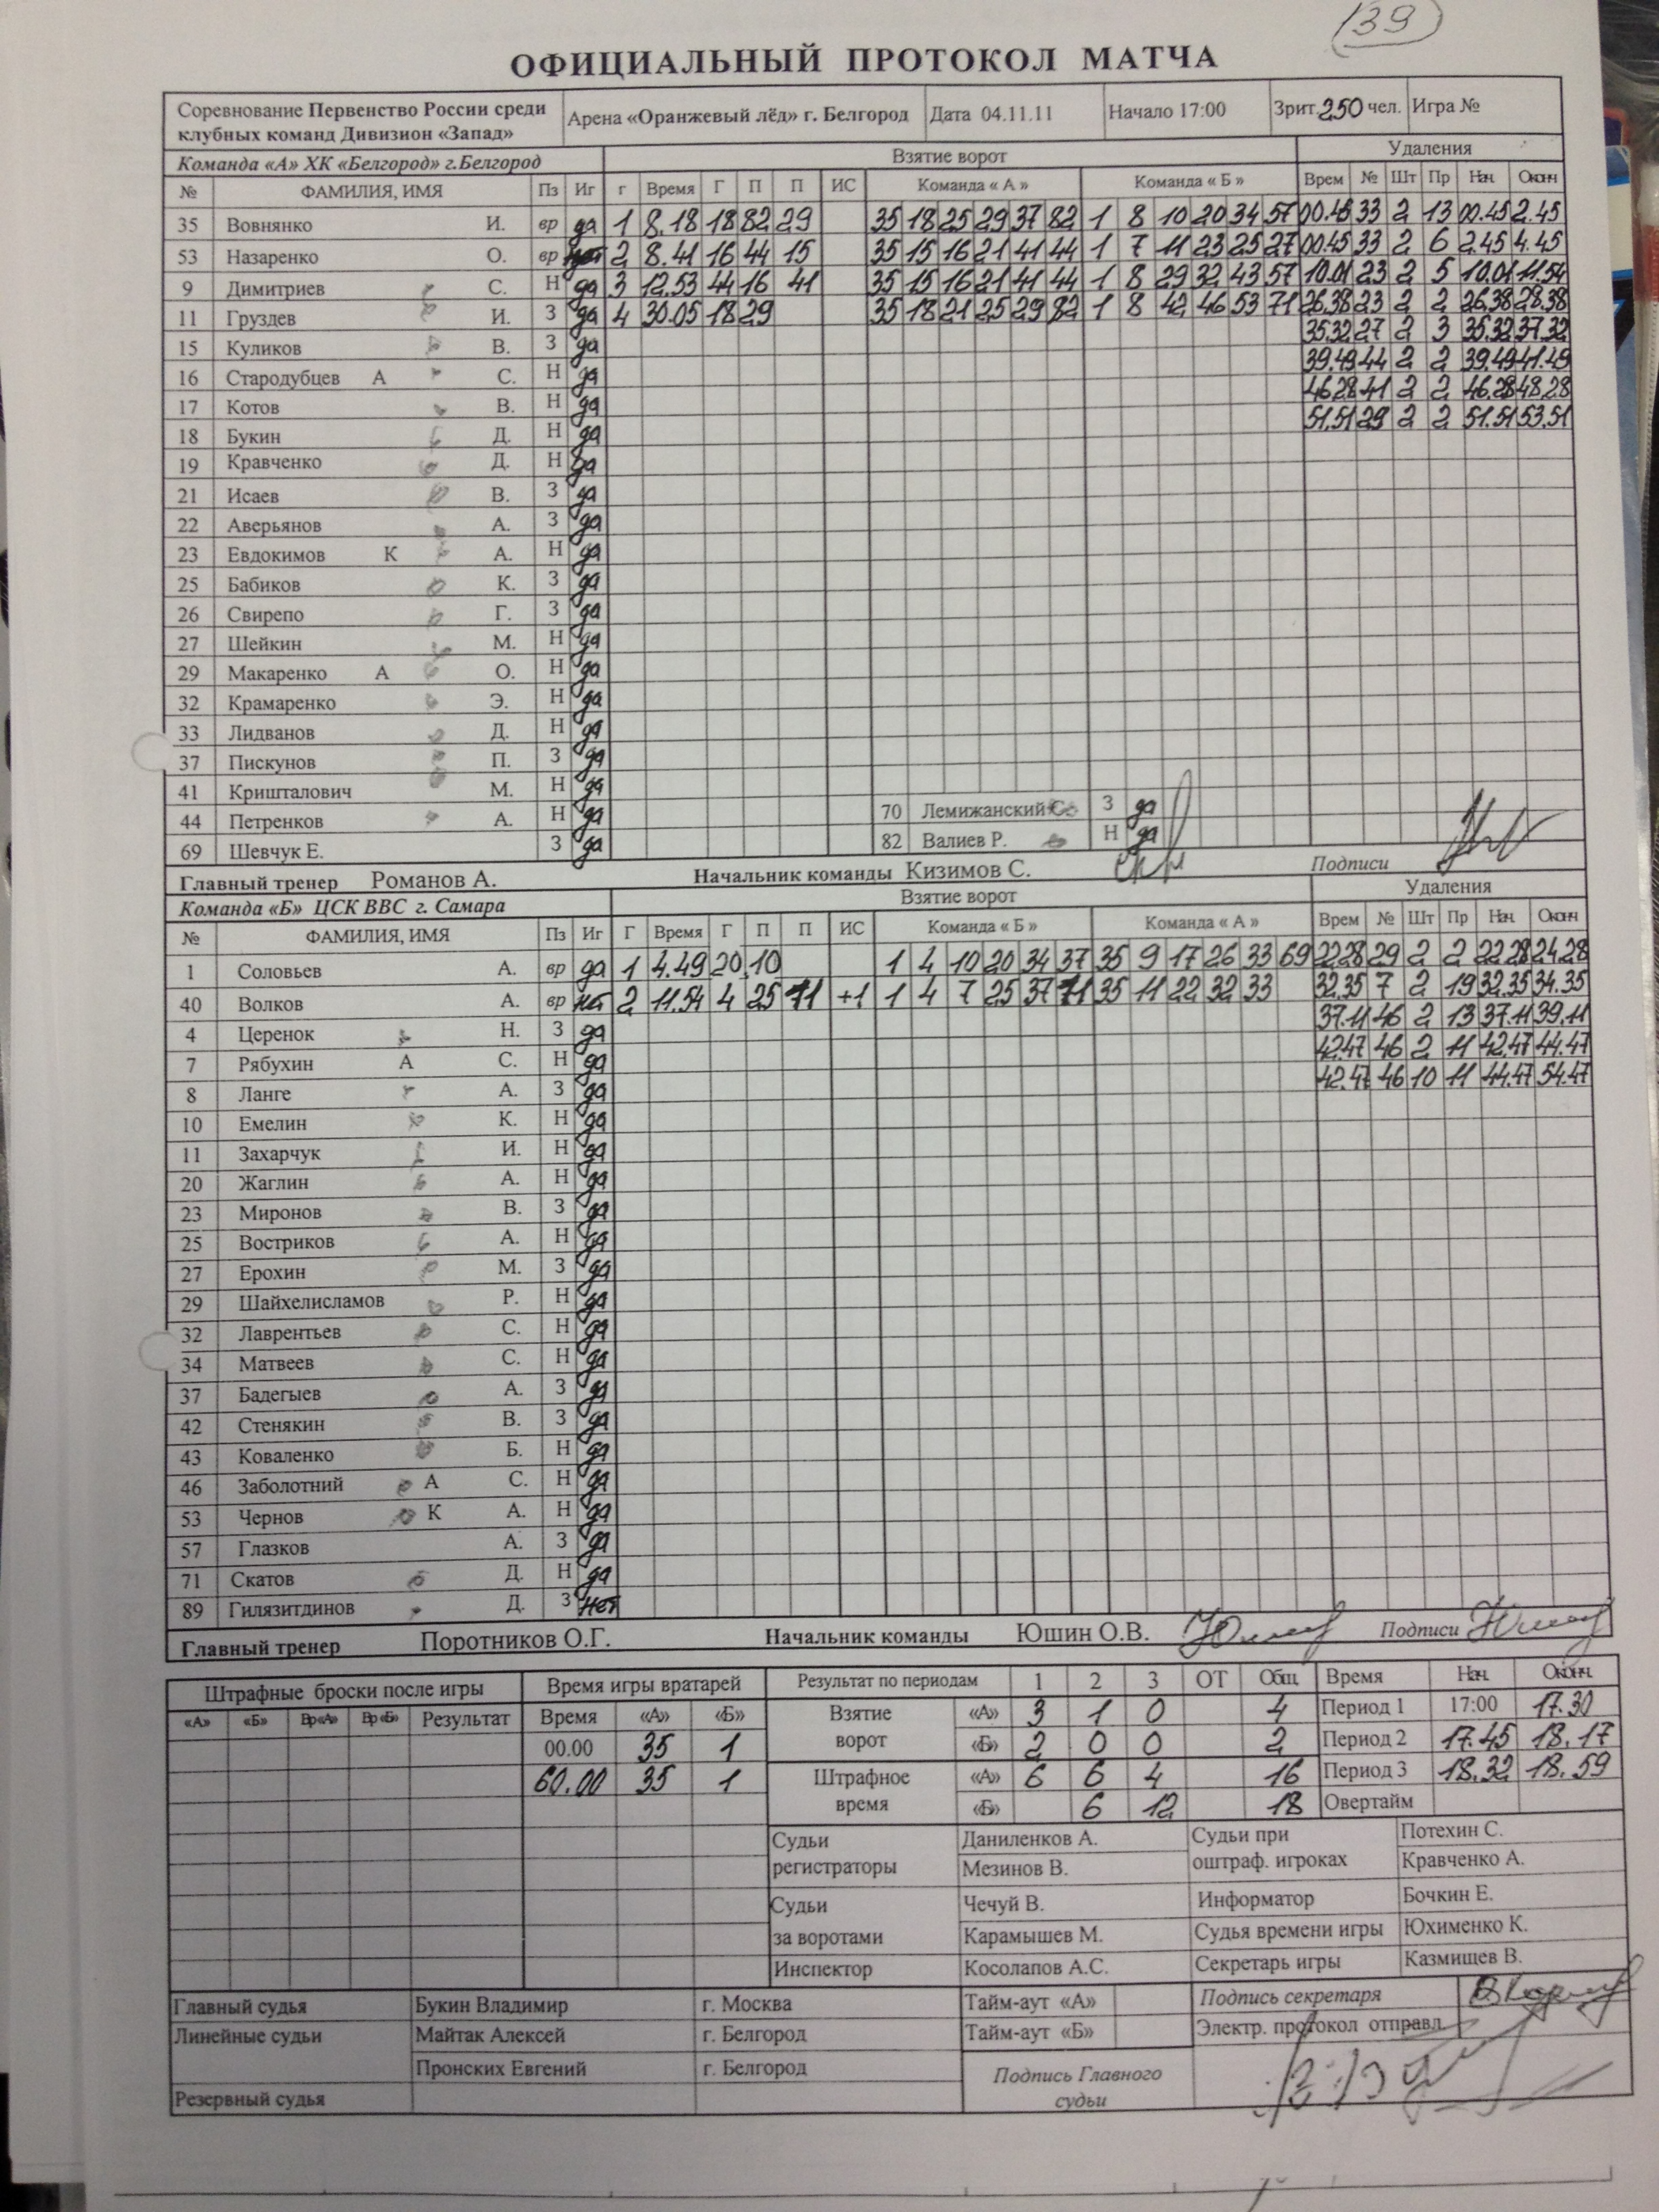 39
ОФИЦИАЛЬНЫЙ ПРОТОКОЛ МАТЧА
Соревнование Первенство России среди клубных команд Дивизион «Запад» Арена «Оранжевый лёд» г. Белгород Дата 04.11.11 Начало 17:00 Зрит. 250 чел. Игра №
Команда «А» ХК «Белгород» г.Белгород Взятие ворот Удаления
№ ФАМИЛИЯ, ИМЯ Пз Иг г Время Г П П ИС Команда « А » Команда « Б » Врем № Шт Пр Нач. Оконч
35 Вовнянко И. вр да 1 8.18 18 82 29 35 18 25 29 37 82 1 8 10 20 34 57 00.45 33 2 13 00.45 2.45
53 Назаренко О. вр нет 2 8.41 16 44 15 35 15 16 21 41 44 1 7 11 23 25 27 00.45 33 2 6 2.45 4.45
9 Димитриев С. Н да 3 12.53 44 16 41 35 15 16 21 41 44 1 8 29 32 43 57 10.01 23 2 5 10.01 11.54
11 Груздев И. З да 4 30.05 18 29 35 18 21 25 29 82 1 8 42 46 53 71 26.38 23 2 2 26.38 28.38
15 Куликов В. З да 35.32 27 2 3 35.32 37.32
16 Стародубцев А С. Н да 39.49 44 2 2 39.49 41.49
17 Котов В. Н да 46.28 41 2 2 46.28 48.28
18 Букин Д. Н да 51.51 29 2 2 51.51 53.51
19 Кравченко Д. Н да
21 Исаев В. З да
22 Аверьянов А. З да
23 Евдокимов К А. Н да
25 Бабиков К. З да
26 Свирепо Г. З да
27 Шейкин М. Н да
29 Макаренко А О. Н да
32 Крамаренко Э. Н да
33 Лидванов Д. Н да
37 Пискунов П. З да
41 Кришталович М. Н да
44 Петренков А. Н да 70 Лемижанский С. З да
69 Шевчук Е. З да 82 Валиев Р. Н да
Главный тренер Романов А. Начальник команды Кизимов С. Подписи
Команда «Б» ЦСК ВВС г. Самара Взятие ворот Удаления
№ ФАМИЛИЯ, ИМЯ Пз Иг Г Время Г П П ИС Команда « Б » Команда « А » Врем № Шт Пр Нач. Оконч
1 Соловьев А. вр да 1 4.49 20 10 1 4 10 20 34 37 35 9 17 26 33 69 22.28 29 2 2 22.28 24.28
40 Волков А. вр нет 2 11.54 4 25 71 +1 1 4 7 25 37 71 35 11 22 32 33 32.35 7 2 19 32.35 34.35
4 Церенок Н. З да 37.11 46 2 13 37.11 39.11
7 Рябухин А С. Н да 42.47 46 2 11 42.47 44.47
8 Ланге А. З да 42.47 46 10 11 44.47 54.47
10 Емелин К. Н да
11 Захарчук И. Н да
20 Жаглин А. Н да
23 Миронов В. З да
25 Востриков А. Н да
27 Ерохин М. З да
29 Шайхелисламов Р. Н да
32 Лаврентьев С. Н да
34 Матвеев С. Н да
37 Бадегыев А. З да
42 Стенякин В. З да
43 Коваленко Б. Н да
46 Заболотний А С. Н да
53 Чернов К А. Н да
57 Глазков А. З да
71 Скатов Д. Н да
89 Гилязитдинов Д. З нет
Главный тренер Поротников О.Г. Начальник команды Юшин О.В. Подписи
Штрафные броски после игры Время игры вратарей Результат по периодам 1 2 3 ОТ Общ. Время Нач. Оконч.
«А» «Б» Вр«А» Вр«Б» Результат Время «А» «Б» Взятие ворот «А» 3 1 0 4 Период 1 17:00 17.30
00.00 35 1 «Б» 2 0 0 2 Период 2 17.45 18.17
60.00 35 1 Штрафное время «А» 6 6 4 16 Период 3 18.32 18.59
«Б» 6 12 18 Овертайм
Судьи регистраторы Даниленков А. Судьи при оштраф. игроках Потехин С.
Мезинов В. Кравченко А.
Судьи за воротами Чечуй В. Информатор Бочкин Е.
Карамышев М. Судья времени игры Юхименко К.
Инспектор Косолапов А.С. Секретарь игры Казмищев В.
Главный судья Букин Владимир г. Москва Тайм-аут «А» Подпись секретаря
Линейные судьи Майтак Алексей г. Белгород Тайм-аут «Б» Электр. протокол отправл.
Пронских Евгений г. Белгород Подпись Главного судьи
Резервный судья